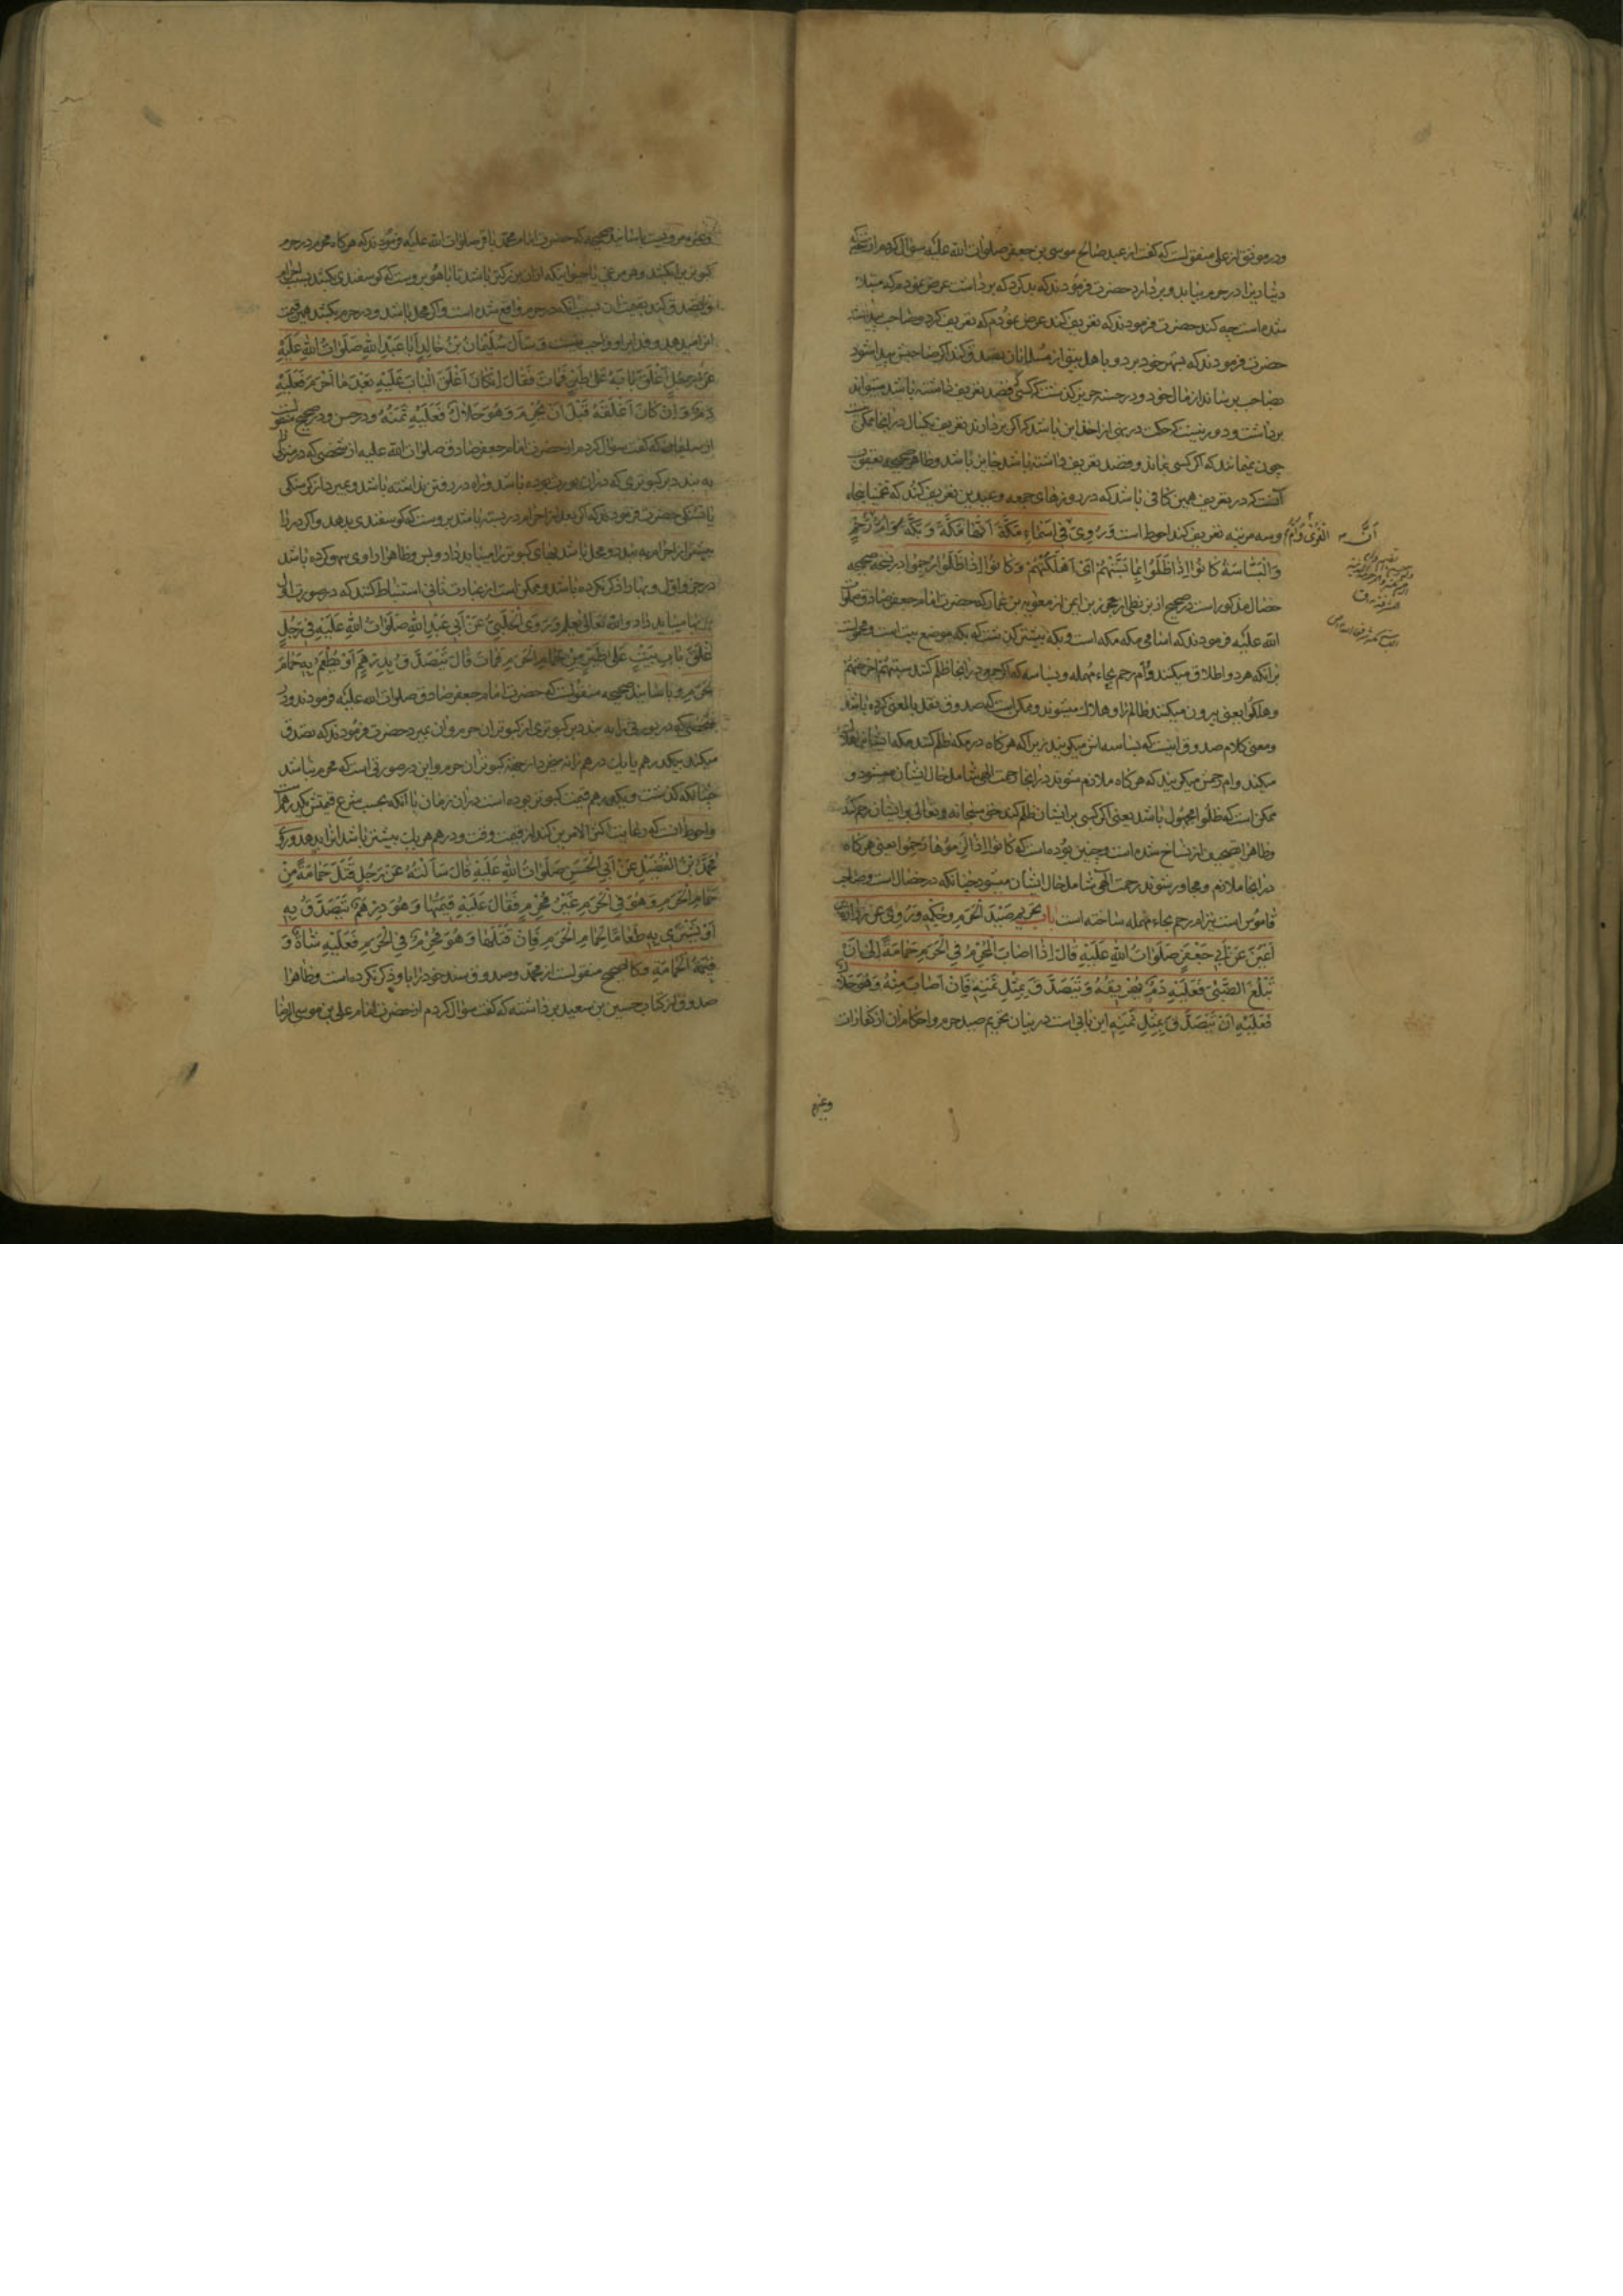 ودر موثق از علی منقولست که گفت از عبد صالح موسی بن جعفر صلوات الله علیه سؤال کردم از شخصی که
دیناریرا در حرم بیابد و بردارد حضرت فرمودند که بد کرد که برداشت عرض نمودم که مبتلا
شده است چه کند حضرت فرمودند که تعریف کند عرض نمودم که تعریف کرد و صاحب
حضرت فرمودند که بشهر خود برد و باهل بیتی از مسلمانان تصدق کند اگر صاحبش پیدا شود
بصاحب برساند از مال خود و در حسنه حریز گذشت که کسی قصد تعریف داشته باشد میتواند
برداشت و دور نیست که حکمت در نهی از اخذ این باشد که اگر بردارند تعریف یکسال در اینجا ممکن نیست
چون نمیمانند که اگر کسی بماند و قصد تعریف داشته باشد جایز باشد وظاهر صحیحه یعقوب
آنست که در تعریف همین کافی باشد که در روزهای جمعه و عیدین تعریف کنند که
وسه مرتبه تعریف کند احوط است وَرُوِیَ فی اَسْمَاءِ مَکَّةَ اَنَّهَا مَکَّةُ وَ بَکَّةُ وَ اُمُّ رُحْمٍ
وَالْبَسَّاسَةُ کَانُوا اِذَا ظَلَمُوا بِهَا بَسَّتْهُمْ اَیْ اَهْلَکَتْهُمْ وَکَانُوا اِذَا ظُلِمُوا رُحِمُوا در نسخه صحیحه
خصال مذکور است در صحیح از بزنطی از محرز بن ایمن از معویه بن عمار که حضرت امام جعفر صادق صلوات
الله علیه فرمودند که اسامی مکه مکه است و بکه پیشتر گذشت که بکه موضع بیت است
برآنکه هر دو اطلاق میکنند و اُم رحم بحاء مهمله و بساسه که اگر مردم در اینجا ظلم کنند بستهم اخرجتهم
وهلکوا یعنی بیرون میکند ظالم را و هلاک میشوند و ممکن است که صدوق نقل بالمعنی کرده باشد
ومعنی کلام صدوق اینست که بساسه اش میگویند زیرا که هر گاه در مکه ظلم کنند مکه ایشانرا هلاک
میکند و ام رحمش میگویند که هر گاه ملازم شوند در اینجا رحمت الهی شامل حال ایشان میشود و
ممکن است که ظلموا مجهول باشد یعنی اگر کسی بر ایشان ظلم کند حق سبحانه وتعالی بر ایشان رحم کند
وظاهرا تصحیف از نساخ شده است وچنین بوده است که کانوا اذا لزموها رحموا یعنی هر گاه
در اینجا ملازم و مجاور شوند رحمت الهی شامل حال ایشان میشود چنانکه در خصال است وصاحب
قاموس است نیز ام رحم بحاء مهمله ساخته است باب تحریم صَیْدَ الْحَرَمِ وَحُکْمِهِ وَرُوِیَ عَنْ زُرارَةَ بن
اَعْیَنَ عَنْ اَبِی جَعْفَرٍ صَلَوَاتُ اللهِ عَلَیْهِ قَالَ اِذَا اَصَابَ الْمُحْرِمُ فِی الْحَرَمِ حَمَامَةً اِلَی اَنْ
تَبْلُغَ الظَّبْیَ فَعَلَیْهِ دَمٌ یُهَرِیقُهُ وَیَتَصَدَّقُ بِمِثْلِ ثَمَنِهِ فَاِنْ اَصَابَ مِنْهُ وَهُوَ حَلَالٌ
فَعَلَیْهِ اَنْ یَتَصَدَّقَ بِمِثْلِ ثَمَنِهِ این بابی است در بیان تحریم صید حرم و احکام آن از کفارات
وغیره
وغیره مرویست باسانید صحیحه که حضرت امام محمد باقر صلوات الله علیه فرمودند که هر گاه محرم در حرم
کبوتریرا بکشد وهر مرغی یا حیوانیکه از ان بزرگتر باشد تا باهو بروست که گوسفندی بکشد بسبب احرام
وتصدق کند بقیمت ان بسبب آنکه در حرم واقع شده است و اگر محل باشد و در حرم بکشد همین قیمت
انرا میدهد و فدا بر او واجب نیست وَسَأَلَ سُلَیْمَانُ بْنُ خَالِدٍ اَبَا عَبْدِ اللهِ صَلَوَاتُ اللهِ عَلَیْهِ
عَنْ رَجُلٍ اَغْلَقَ بَابَهُ عَلَی طَیْرٍ فَمَاتَ فَقَالَ اِنْ کَانَ اَغْلَقَ الْبَابَ عَلَیْهِ بَعْدَ مَا اَحْرَمَ فَعَلَیْهِ
دَمٌ وَاِنْ کَانَ اَغْلَقَهُ قَبْلَ اَنْ یُحْرِمَ وَهُوَ حَلَالٌ فَعَلَیْهِ ثَمَنُهُ ودر حسن و در صحیح منقولست
از سلیمان که گفت سؤال کردم از حضرت امام جعفر صادق صلوات الله علیه از شخصی که در منزلی
به بندد بر کبوتری که در ان بوده باشد و راه در رفتن نداشته باشد و بمیرد از گرسنگی
یا تشنگی حضرت فرمودند که اگر بعد از احرام در بسته باشد بروست که گوسفندی بدهد و اگر در را
پیشتر از احرام به بندد و محل باشد بهای کبوتر را میباید داد وبس وظاهرا راوی سهو کرده باشد
در جزو اول و بها را ذکر نکرده باشد و ممکن است از عبارت ثانی استنباط کنند که در صورت اول
بها میباید داد والله تعالی یعلم وَرَوَی الْحَلَبِیُّ عَنْ اَبِی عَبْدِ اللهِ صَلَوَاتُ اللهِ عَلَیْهِ فِی رَجُلٍ
اَغْلَقَ بَابَ بَیْتٍ عَلَی طَیْرٍ مِنْ حَمَامِ الْحَرَمِ فَمَاتَ قَالَ یَتَصَدَّقُ بِدِرْهَمٍ اَوْ یُطْعِمُ بِهِ حَمَامَ
الْحَرَمِ وباسانید صحیحه منقولست که حضرت امام جعفر صادق صلوات الله علیه فرمودند در
شخصی که در بر کبوتری از کبوتران حرم و ان بمیرد حضرت فرمودند که تصدق
میکند بیکدرهم یا بیک درهم دانه میخرد از جهة کبوتران حرم و این در صورتی است که محرم نباشد
چنانکه گذشت ویکدرهم قیمت کبوتر بوده است در ان زمان با آنکه بحسب شرع قیمتش یکدرهم است
واحوط انست که رعایت اکثر الامرین کند از قیمت وقت و درهم هر یک بیشتر باشد انرا بدهد وَرَوَی
مُحَمَّدُ بْنُ الْفُضَیْلِ عَنْ اَبِی الْحَسَنِ صَلَوَاتُ اللهِ عَلَیْهِ قَالَ سَأَلْتُهُ عَنْ رَجُلٍ قَتَلَ حَمَامَةً مِنْ
حَمَامِ الْحَرَمِ وَهُوَ فِی الْحَرَمِ غَیْرُ مُحْرِمٍ فَقَالَ عَلَیْهِ قِیمَتُهَا وَهُوَ دِرْهَمٌ یَتَصَدَّقُ بِهِ
اَوْ یَشْتَرِی بِهِ طَعَامًا لِحَمَامِ الْحَرَمِ فَاِنْ قَتَلَهَا وَهُوَ مُحْرِمٌ فِی الْحَرَمِ فَعَلَیْهِ شَاةٌ وَ
قِیمَةُ الْحَمَامَةِ وکالصحیح منقولست از محمد وصدوق سند خود را باو ذکر نکرده است وظاهرا
صدوق از کتاب حسین بن سعید برداشته که گفت سؤال کردم از حضرت امام علی بن موسی الرضا